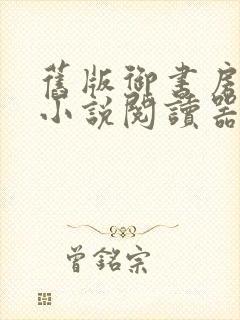 舊版御書房
小說閱讀器
曾銘宗